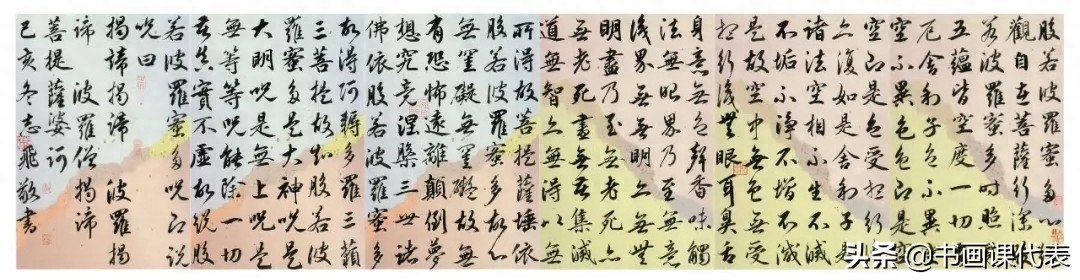 般若波羅蜜多心
觀自在菩薩行深
若波羅蜜多時照
五蘊皆空度一切
厄舍利子色不異
空空不異色色即是
空即是色受想行
亦復如是舍利子是
諸法空相不生不滅
不垢不淨不增不減
是故空中無色無受
想行識無眼耳鼻舌
身意無色聲香味觸
法無眼界乃至無意
識界無無明亦無無
明盡乃至無老死亦
無老死盡無苦集滅
道無智亦無得以無
所得故菩提薩埵依
般若波羅蜜多故心
無罣礙無罣礙故無
有恐怖遠離顛倒夢
想究竟涅槃三世諸
佛依般若波羅蜜多
故得阿耨多羅三藐
三菩提故知般若波
羅蜜多是大神呪是
大明呪是無上呪是
無等等呪能除一切
苦真實不虛故說般
若波羅蜜多呪即說
呪曰
揭諦揭諦 波羅揭
諦 波羅僧揭諦
菩提薩婆訶
己亥冬志飛敬書
头条 @书画课代表